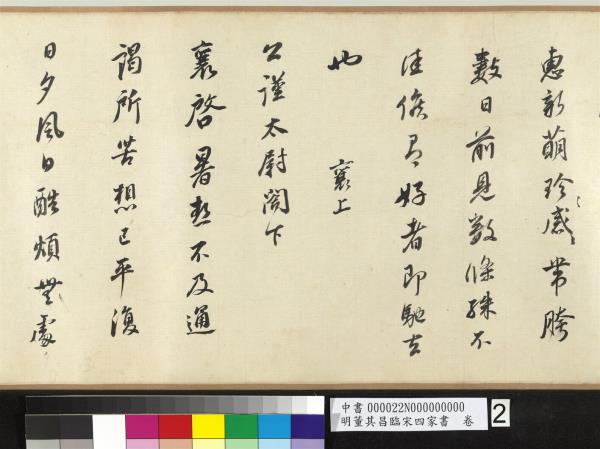 惠新萌珍〻感〻帶胯
數日前見數條殊不
佳候有好者即馳去
也 襄上
公謹太尉閣下
襄啓暑熱不及通
謁所苦想已平復
日夕風日酷煩無處
中書 000022N000000000
明董其昌臨宋四家書 卷
2